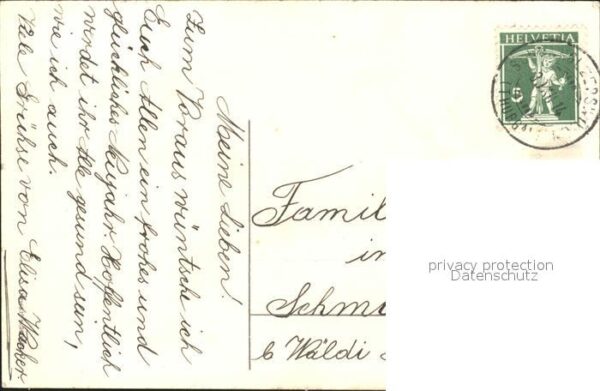 Meine Lieben!
Zum Voraus wüntsche ich
Euch Allen ein frohes und
glückliches Neujahr. Hoffentlich
werdet ihr Alle gesund sein,
wie ich auch.
Viele Grühse von Elisa Wacker
HELVETIA
5
Famil
in
Schm
b Wäldi
privacy protection
Datenschutz